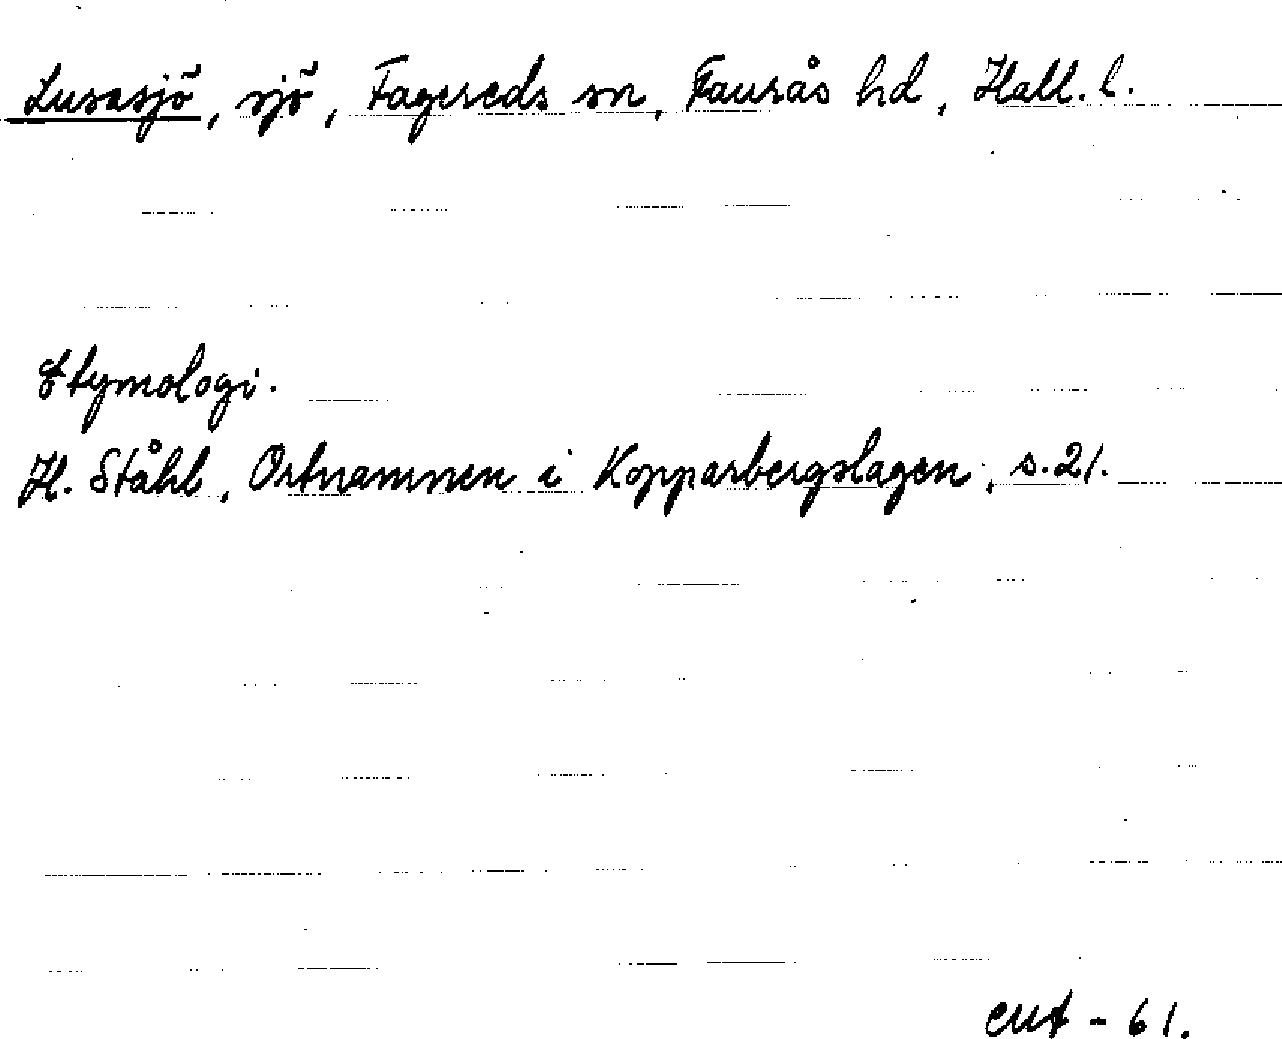 Lusasjö, sjö, Fagereds sn, Faurås hd, Hall. l.
Etymologi.
H. Ståhl, Ortnamnen i Kopparbergslagen, s. 21.